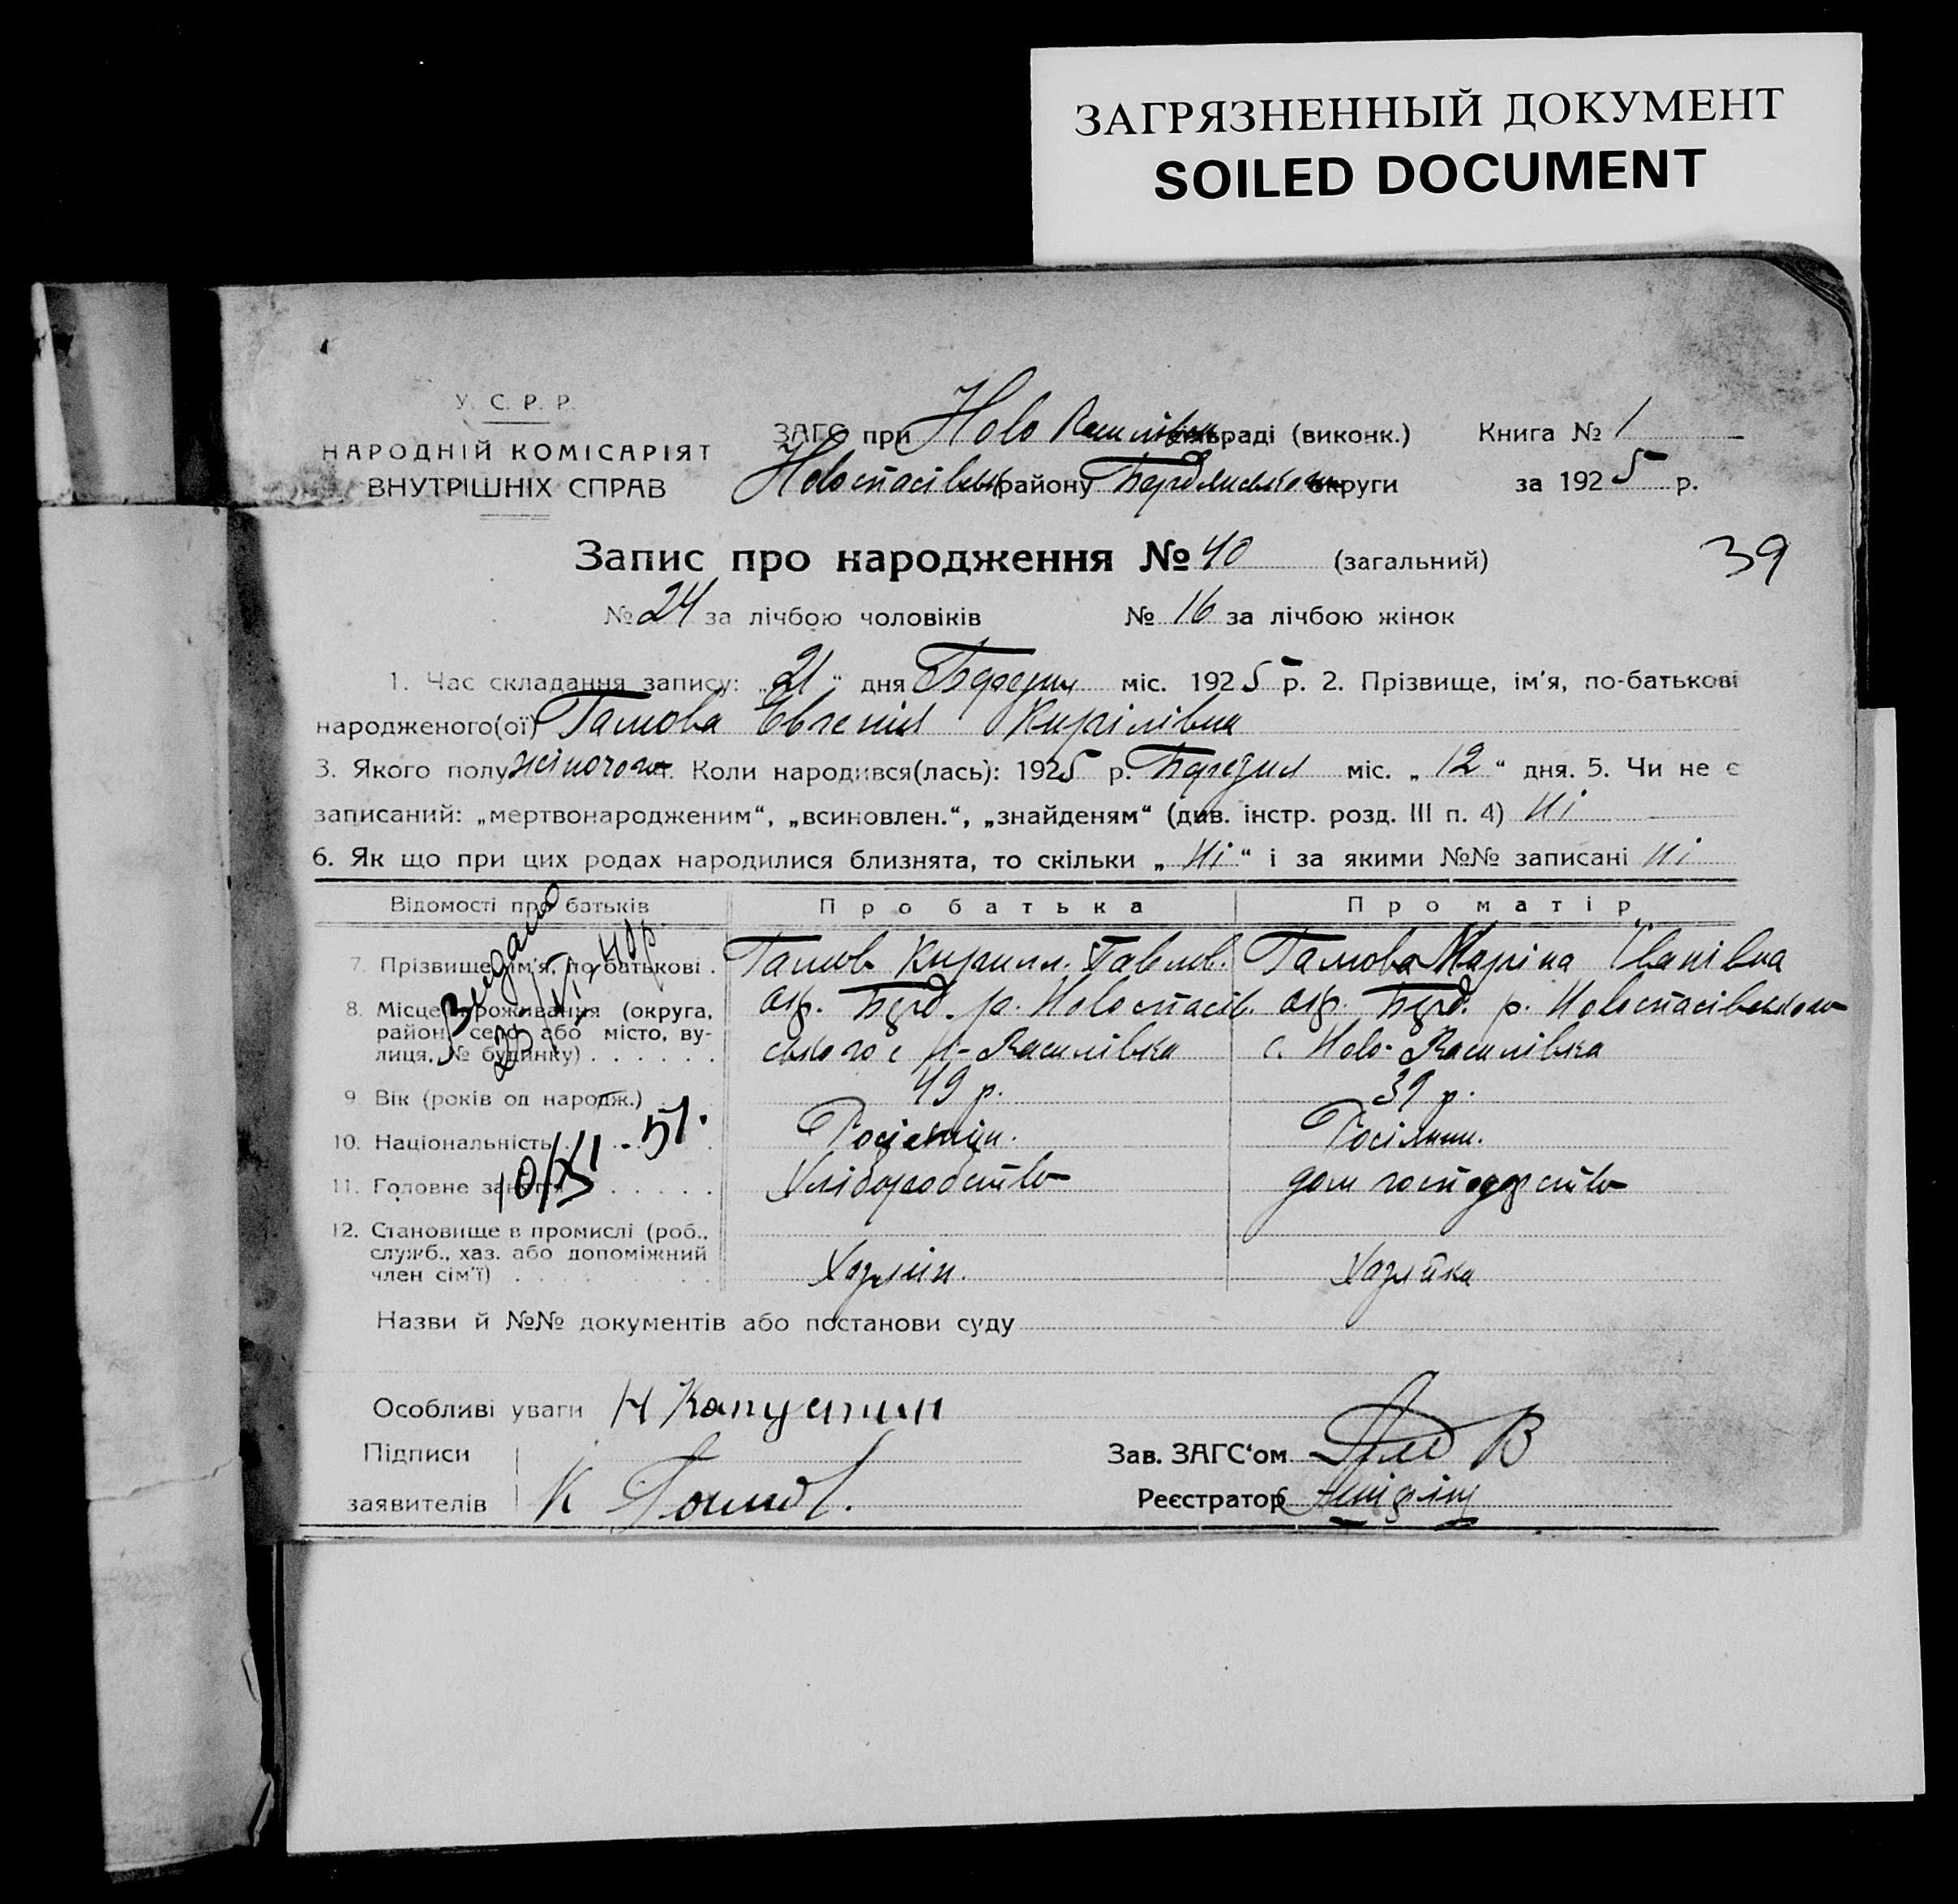 ЗАГРЯЗНЕННЫЙ ДОКУМЕНТ
SOILED DOCUMENT
У. С. Р. Р.
НАРОДНІЙ КОМІСАРІЯТ
ВНУТРІШНІХ СПРАВ
ЗАГС при Ново Василівськ сільраді (виконк.) Книга № 1
Новоспасівськ району Бердянської округи за 1925 р.
39
Запис про народження № 40 (загальний)
№ 24 за лічбою чоловіків № 16 за лічбою жінок
1. Час складання запису: „21“ дня Березня міс. 1925 р. 2. Прізвище, ім’я, по-батькові
народженого(ої) Гамова Евгенія Кирілівна
3. Якого полу жіночого 4. Коли народився(лась): 1925 р. Березня міс. „12“ дня. 5. Чи не є
записаний: „мертвонародженим“, „всиновлен.“, „знайденям“ (див. інстр. розд. III п. 4) Ні
6. Як що при цих родах народилися близнята, то скільки „Ні“ і за якими №№ записані Ні
Відомості про батьків Про батька Про матір
7. Прізвище, ім’я, по-батькові. Гамов Кирилл. Павлов. Гамова Маріна Іванівна
8. Місце проживання (округа, окр. Берд. р. Новоспасів. окр. Берд. р. Новоспасівського
район, село або місто, ву-
лиця, № будинку) ського с Н-Василівка с. Ново-Василівка
9. Вік (років од народж.) 49 р. 39 р.
10. Національність Росіянин. Росіянин.
11. Головне заняття Хліборобство дом господарство
12. Становище в промислі (роб.,
служб., хаз. або допоміжний
член сім’ї) Хазяїн. Хазяйка
Видано
10/XI - 51.
Назви й №№ документів або постанови суду
Особливі уваги Н Капустин
Підписи
заявителів К Гамов.
Зав. ЗАГС‘ом
Реєстратор